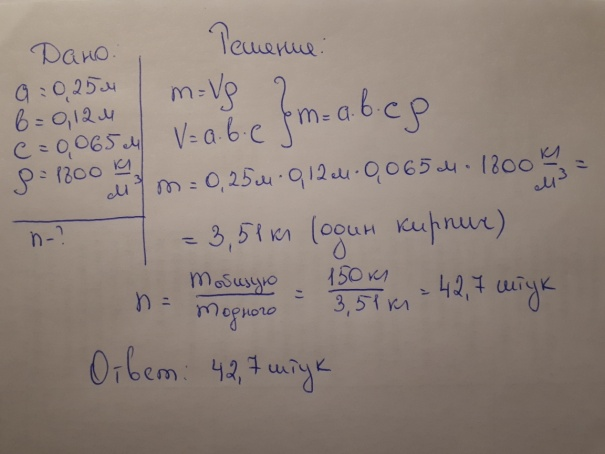 Дано:
a = 0,25м
в = 0,12м
c = 0,065м
ρ = 1800 кг/м³
n - ?
Решение:
m = Vρ
V = a·в·c
} m = a·в·c ρ
m = 0,25м · 0,12м · 0,065м · 1800 кг/м³ =
= 3,51кг (один кирпич)
n = mобщую/mодного = 150кг/3,51кг = 42,7 штук
Ответ: 42,7 штук